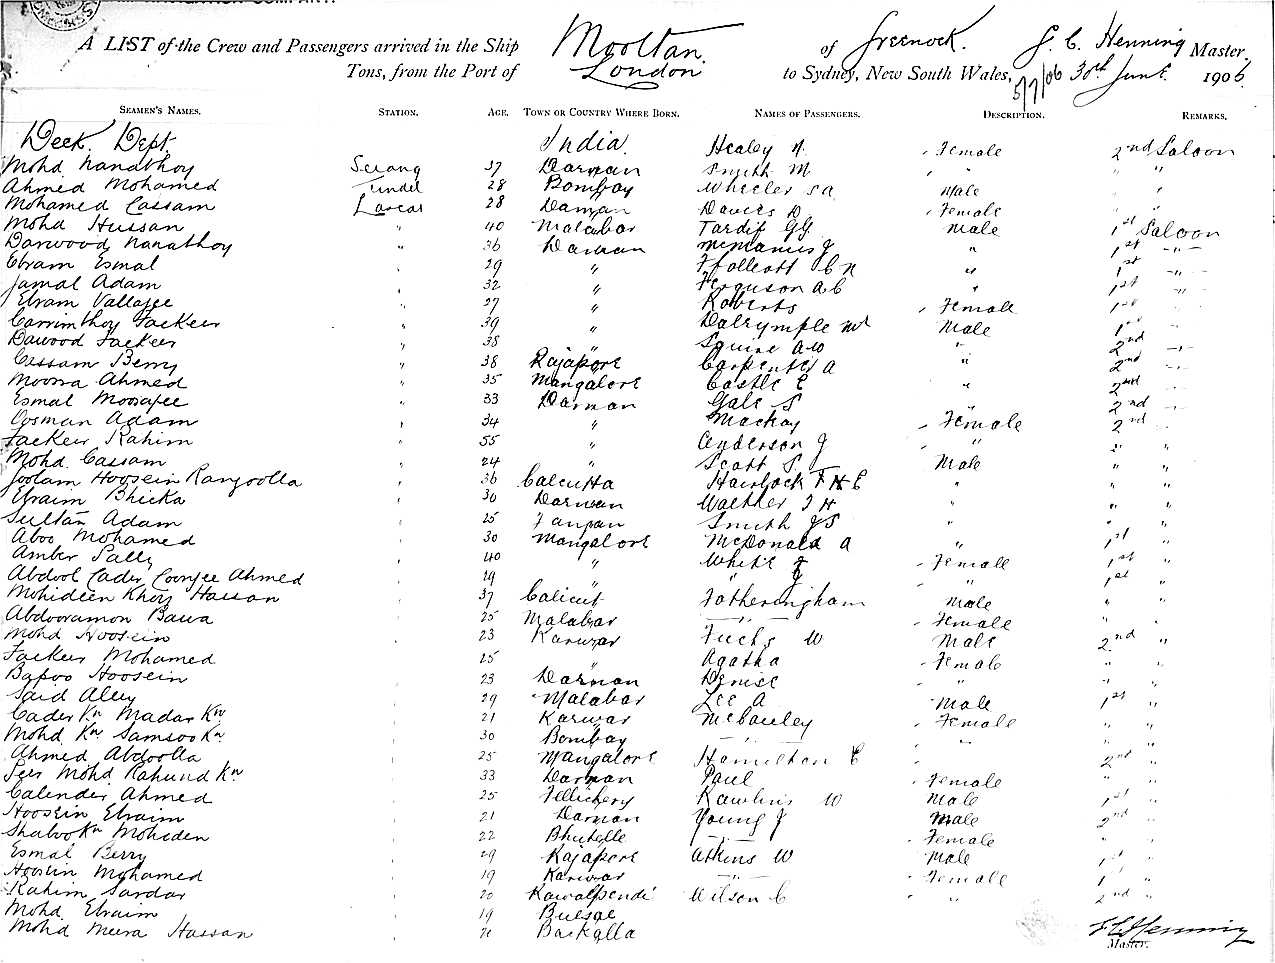 A LIST of the Crew and Passengers arrived in the Ship Mooltan of Greenock. J. C. Henning Master,
Tons, from the Port of London to Sydney, New South Wales, 5/7/06 30th June 1906.
SEAMEN'S NAMES. STATION. AGE. TOWN OR COUNTRY WHERE BORN. NAMES OF PASSENGERS. DESCRIPTION. REMARKS.
Deck Dept. India. Healey H. Female 2nd Saloon
Mohd Nanabhoy Serang 37 Daman Smith M " "
Ahmed Mohamed Tindel 28 Bombay Wheeler Male "
Mohamed Cassam Lascar 28 Daman Davies D Female "
Mohd Hussan " 40 Malabar Tardif G.G. Male 1st Saloon
Darwood Nanabhoy " 36 Daman McManus J " 1st "
Ebram Esmal " 29 " Ffolliott C N " 1st "
Jamal Adam " 32 " Ferguson A C " 1st "
Ebram Vallajee " 27 " Roberts Female 1st "
Carrimbhoy Fackeer " 39 " Dalrymple Male 1st "
Dawood Fackeer " 38 " Squire A W " 2nd "
Cassam Berry " 38 Rajapore Carpenter A " 2nd "
Moosa Ahmed " 35 Mangalore Castle E " 2nd "
Esmal Moosajee " 33 Daman Gale S " 2nd "
Oosman Adam " 34 " Mackay Female 2nd "
Fackeer Rahim " 55 " Anderson J " " "
Mohd. Cassam " 24 " Scott S Male " "
Goolam Hoosein Rangoolla " 36 Calcutta Havelock F H E " " "
Ebraim Bhicka " 30 Daman Walther J H " " "
Sultan Adam " 25 Smith J S " " "
Aboo Mohamed " 30 Mangalore McDonald A " 1st "
Amber Sally " 40 " White J Female 1st "
Abdool Cader Coonjee Ahmed " 29 " J " 1st "
Mohideen Khoy Hassan " 37 Calicut Fotheringham Male " "
Abdooramon Bawa " 25 Malabar " Female " "
Mohd Hoosein " 23 Karwar Fuchs W Male 2nd "
Fackeer Mohamed " 25 " Agatha Female " "
Bapoo Hoosein " 23 Daman Denise " " "
Said Alley " 29 Malabar Lee A Male 1st "
Cader Kn Madar Kn " 21 Karwar McCauley Female " "
Mohd Kn Samsoo Kn " 30 Bombay " " " "
Ahmed Abdoolla " 25 Mangalore Hamilton E 2nd "
Mohd Rahund Kn " 33 Daman Paul Female " "
Calender Ahmed " 25 Tellichery Rawlins W Male 1st "
Hoosein Ebraim " 21 Daman Young J Male 2nd "
Shabook Kn Mohiden " 22 " Female " "
Esmal Berry " 29 Rajapore Atkins W Male 1st "
Hoosein Mohamed " 19 Karwar " Female 1st "
Rahim Sardar " 20 Rawalpendi Wilson C " 2nd "
Mohd. Ebraim " 19
Mohd Meera Hassan " Backalla J C Henning
Master.